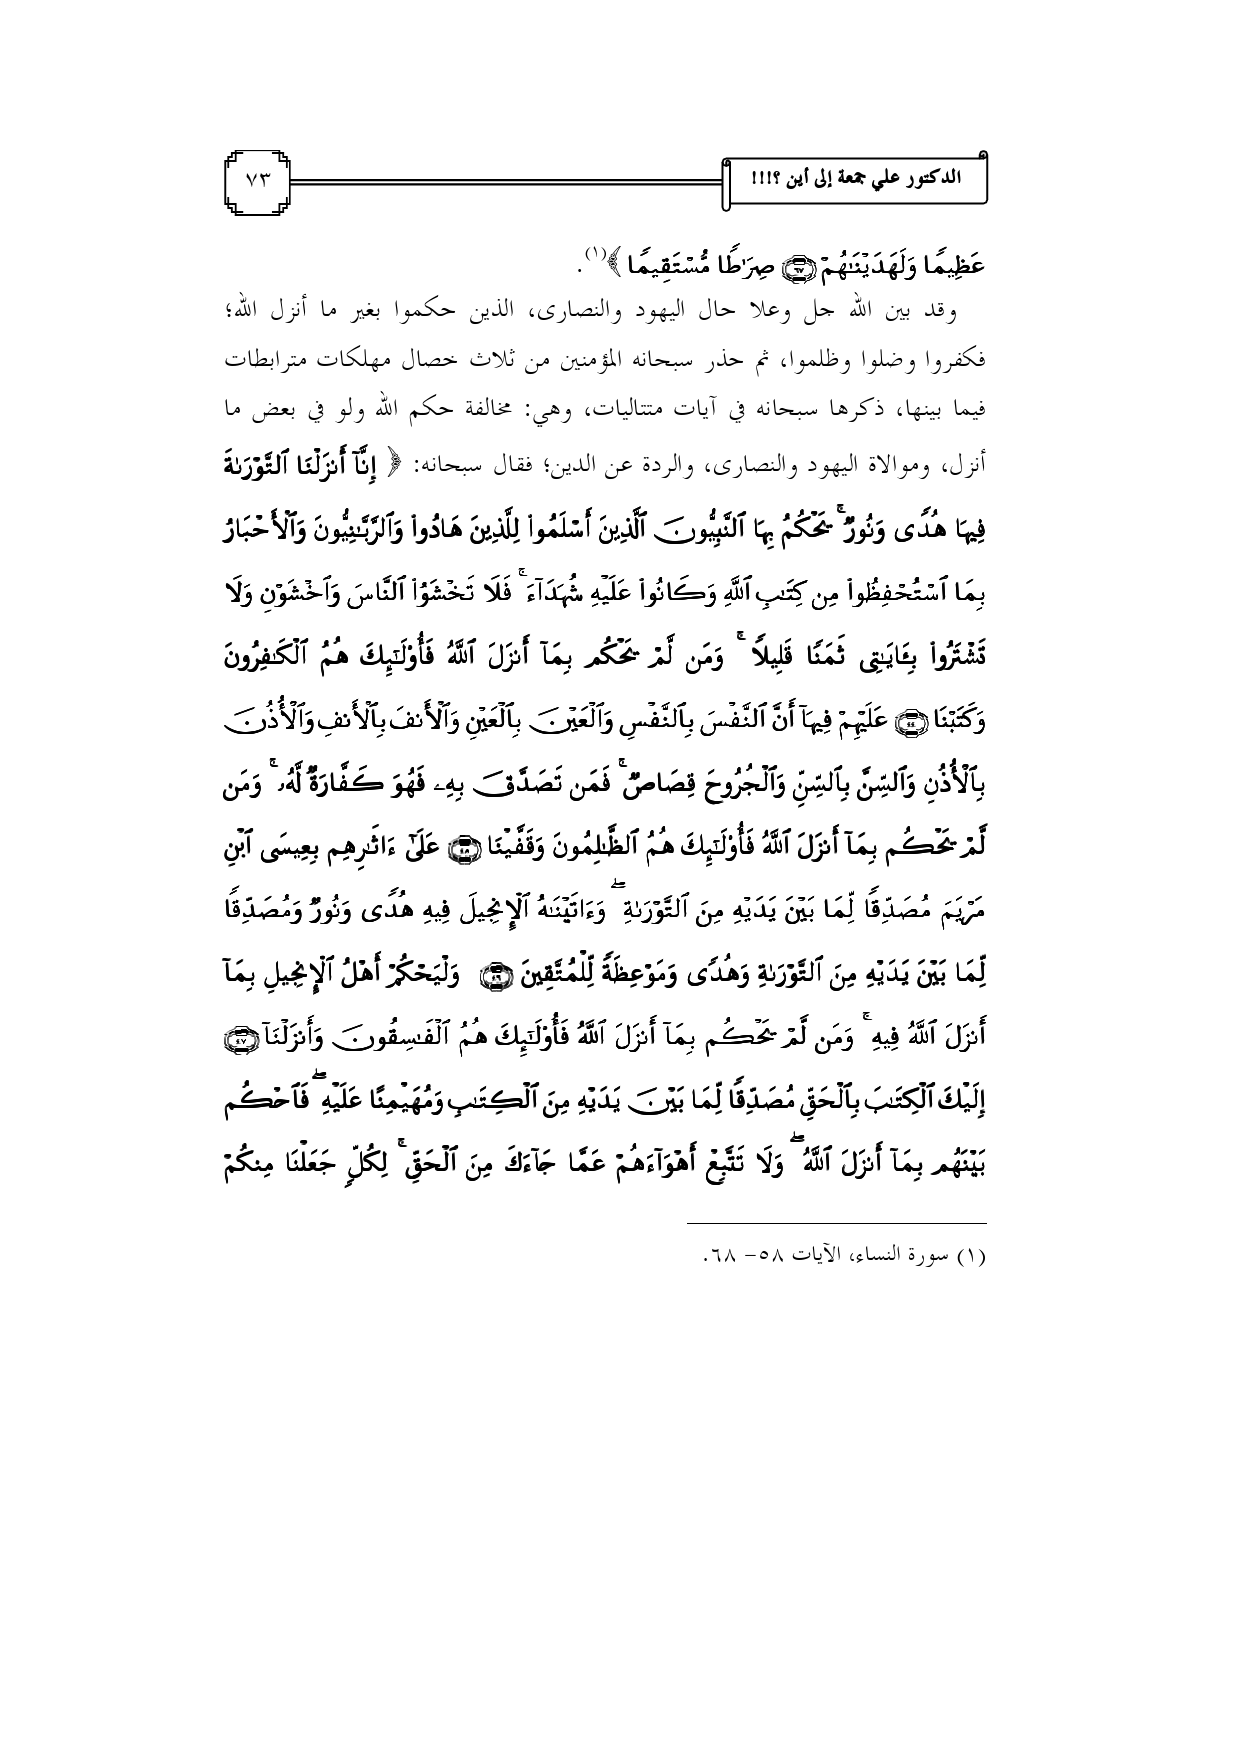 الدكتور علي جمعة إلى أين ؟!!!
٧٣
عَظِيمًا وَلَهَدَيْنَـٰهُمْ ﴿٦٧﴾ صِرَٰطًا مُّسْتَقِيمًا ﴾(١).
وقد بين الله جل وعلا حال اليهود والنصارى، الذين حكموا بغير ما أنزل الله؛
فكفروا وضلوا وظلموا، ثم حذر سبحانه المؤمنين من ثلاث خصال مهلكات مترابطات
فيما بينها، ذكرها سبحانه في آيات متتاليات، وهي: مخالفة حكم الله ولو في بعض ما
أنزل، وموالاة اليهود والنصارى، والردة عن الدين؛ فقال سبحانه: ﴿ إِنَّآ أَنزَلْنَا ٱلتَّوْرَىٰةَ
فِيهَا هُدًى وَنُورٌ ۚ يَحْكُمُ بِهَا ٱلنَّبِيُّونَ ٱلَّذِينَ أَسْلَمُوا۟ لِلَّذِينَ هَادُوا۟ وَٱلرَّبَّـٰنِيُّونَ وَٱلْأَحْبَارُ
بِمَا ٱسْتُحْفِظُوا۟ مِن كِتَـٰبِ ٱللَّهِ وَكَانُوا۟ عَلَيْهِ شُهَدَآءَ ۚ فَلَا تَخْشَوُا۟ ٱلنَّاسَ وَٱخْشَوْنِ وَلَا
تَشْتَرُوا۟ بِـَٔايَـٰتِى ثَمَنًا قَلِيلًا ۚ وَمَن لَّمْ يَحْكُم بِمَآ أَنزَلَ ٱللَّهُ فَأُو۟لَـٰٓئِكَ هُمُ ٱلْكَـٰفِرُونَ
وَكَتَبْنَا ﴿٤٤﴾ عَلَيْهِمْ فِيهَآ أَنَّ ٱلنَّفْسَ بِٱلنَّفْسِ وَٱلْعَيْنَ بِٱلْعَيْنِ وَٱلْأَنفَ بِٱلْأَنفِ وَٱلْأُذُنَ
بِٱلْأُذُنِ وَٱلسِّنَّ بِٱلسِّنِّ وَٱلْجُرُوحَ قِصَاصٌ ۚ فَمَن تَصَدَّقَ بِهِۦ فَهُوَ كَفَّارَةٌ لَّهُۥ ۚ وَمَن
لَّمْ يَحْكُم بِمَآ أَنزَلَ ٱللَّهُ فَأُو۟لَـٰٓئِكَ هُمُ ٱلظَّـٰلِمُونَ وَقَفَّيْنَا ﴿٤٥﴾ عَلَىٰٓ ءَاثَـٰرِهِم بِعِيسَى ٱبْنِ
مَرْيَمَ مُصَدِّقًا لِّمَا بَيْنَ يَدَيْهِ مِنَ ٱلتَّوْرَىٰةِ ۖ وَءَاتَيْنَـٰهُ ٱلْإِنجِيلَ فِيهِ هُدًى وَنُورٌ وَمُصَدِّقًا
لِّمَا بَيْنَ يَدَيْهِ مِنَ ٱلتَّوْرَىٰةِ وَهُدًى وَمَوْعِظَةً لِّلْمُتَّقِينَ ﴿٤٦﴾ وَلْيَحْكُمْ أَهْلُ ٱلْإِنجِيلِ بِمَآ
أَنزَلَ ٱللَّهُ فِيهِ ۚ وَمَن لَّمْ يَحْكُم بِمَآ أَنزَلَ ٱللَّهُ فَأُو۟لَـٰٓئِكَ هُمُ ٱلْفَـٰسِقُونَ وَأَنزَلْنَآ ﴿٤٧﴾
إِلَيْكَ ٱلْكِتَـٰبَ بِٱلْحَقِّ مُصَدِّقًا لِّمَا بَيْنَ يَدَيْهِ مِنَ ٱلْكِتَـٰبِ وَمُهَيْمِنًا عَلَيْهِ ۖ فَٱحْكُم
بَيْنَهُم بِمَآ أَنزَلَ ٱللَّهُ ۖ وَلَا تَتَّبِعْ أَهْوَآءَهُمْ عَمَّا جَآءَكَ مِنَ ٱلْحَقِّ ۚ لِكُلٍّ جَعَلْنَا مِنكُمْ
(١) سورة النساء، الآيات ٥٨– ٦٨.